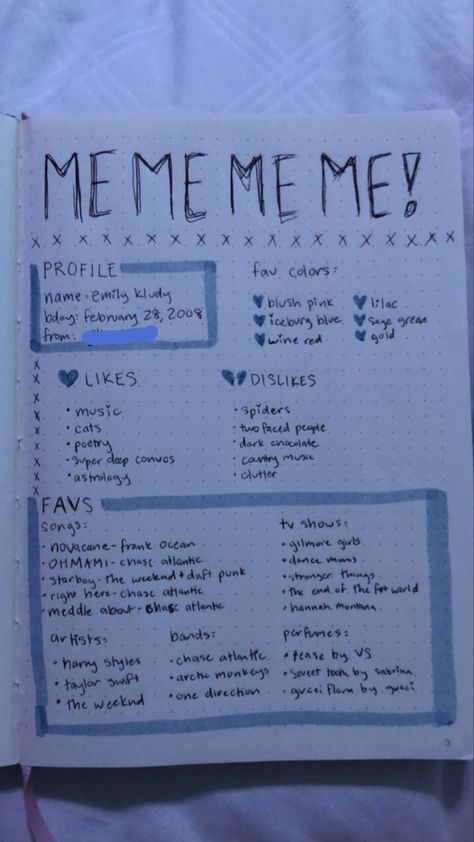 ME ME ME ME!
x x x x x x x x x x x x x x x x x x x x x x x
PROFILE
name: emily kludy
bday: february 28, 2008
from:
fav colors:
blush pink
iceburg blue
wine red
lilac
sage green
gold
LIKES
• music
• cats
• poetry
• super deep convos
• astrology
DISLIKES
• spiders
• two faced people
• dark chocolate
• country music
• clutter
FAVS
songs:
• novacane - frank ocean
• OHMAMI - chase atlantic
• starboy - the weeknd + daft punk
• right here - chase atlantic
• meddle about - chase atlantic
tv shows:
• gilmore girls
• dance moms
• stranger things
• the end of the world
• hannah montana
artists:
• harry styles
• taylor swift
• the weeknd
bands:
• chase atlantic
• arctic monkeys
• one direction
perfumes:
• tease by VS
• sweet tooth by sabrina
• gucci flora by gucci
3